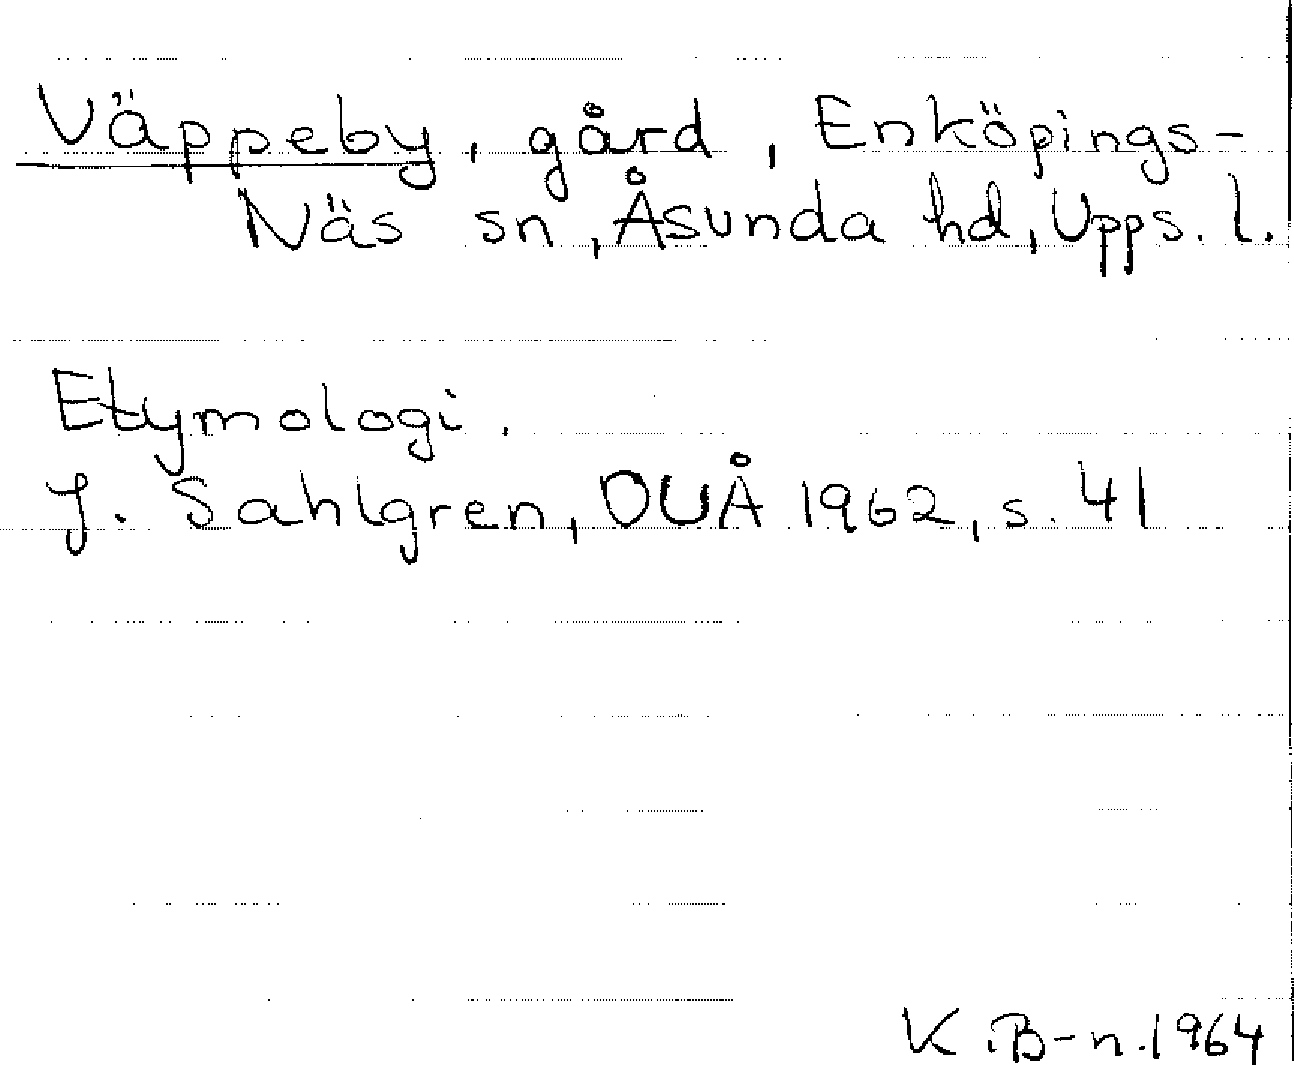 Väppeby, gård, Enköpings-
Näs sn, Åsunda hd, Upps. l.
Etymologi.
J. Sahlgren, OUÅ 1962, s. 41
K.B-n.1964